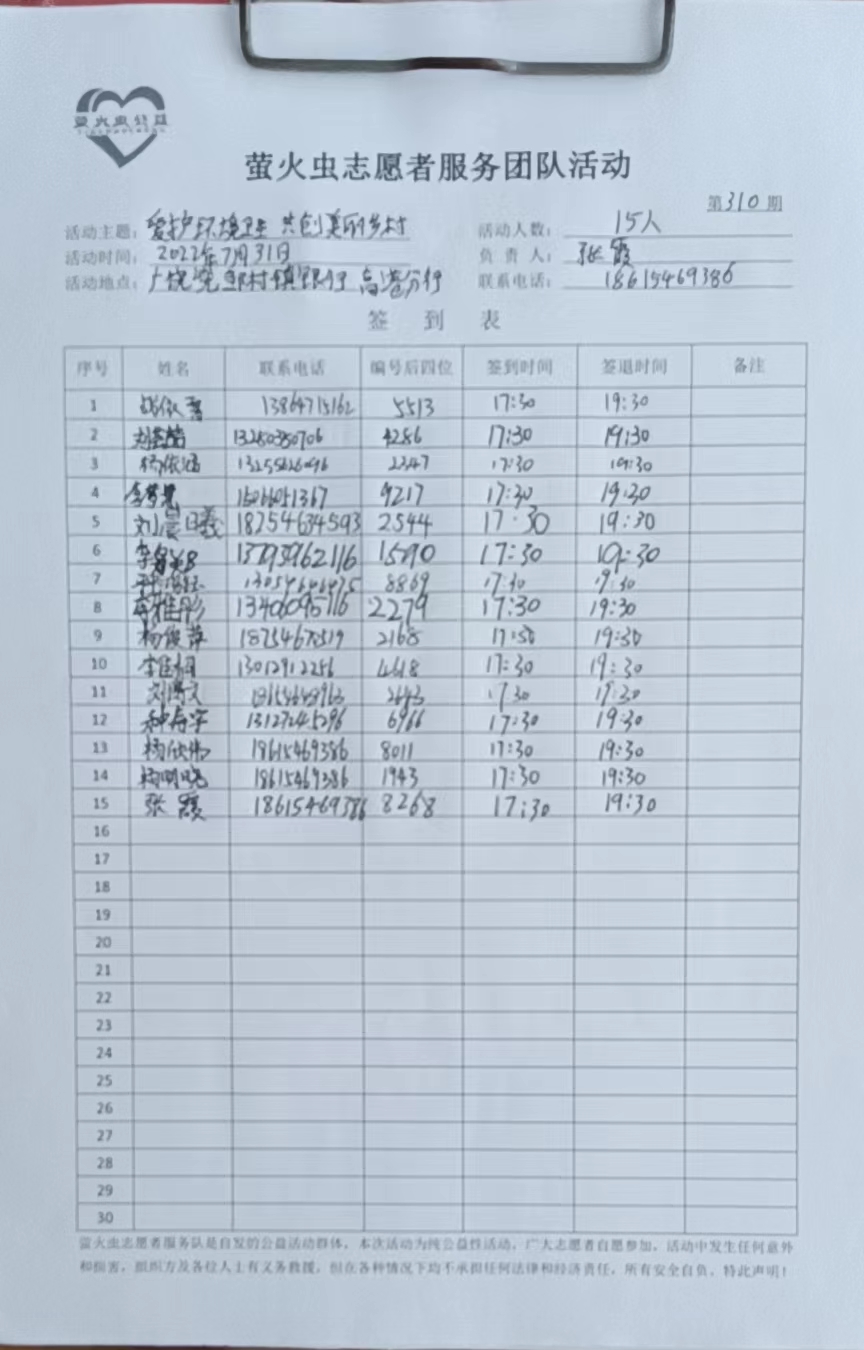 萤火虫公益
萤火虫志愿者服务团队活动
第310期
活动主题: 爱护环境卫生 共创美丽乡村 活动人数: 15人
活动时间: 2022年7月31日 负责人: 张霞
活动地点: 广饶 村镇银行 高港分行 联系电话: 18615469386
签到表
序号 姓名 联系电话 编号后四位 签到时间 签退时间 备注
1 13864715162 5513 17:30 19:30
2 13280380706 4286 17:30 19:30
3 杨依涵 2347 17:30 19:30
4 李梦晁 15066051367 9217 17:30 19:30
5 刘晨曦 18754634593 2544 17:30 19:30
6 13793962116 1590 17:30 19:30
7 13054646475 8869 17:30 19:30
8 李雅彤 13406095116 2279 17:30 19:30
9 杨俊萍 18754678519 2168 17:30 19:30
10 李佳桐 13012912256 4618 17:30 19:30
11 刘博文 2643 17:30 19:30
12 13127245296 6966 17:30 19:30
13 杨欣伟 18615469386 8011 17:30 19:30
14 杨明晓 18615469386 1943 17:30 19:30
15 张霞 18615469386 8268 17:30 19:30
16
17
18
19
20
21
22
23
24
25
26
27
28
29
30
萤火虫志愿者服务队是自发的公益活动群体，本次活动为纯公益性活动，广大志愿者自愿参加，活动中发生任何意外
和损害，组织方及各位人士有义务救援，但在各种情况下均不承担任何法律和经济责任，所有安全自负。特此声明！